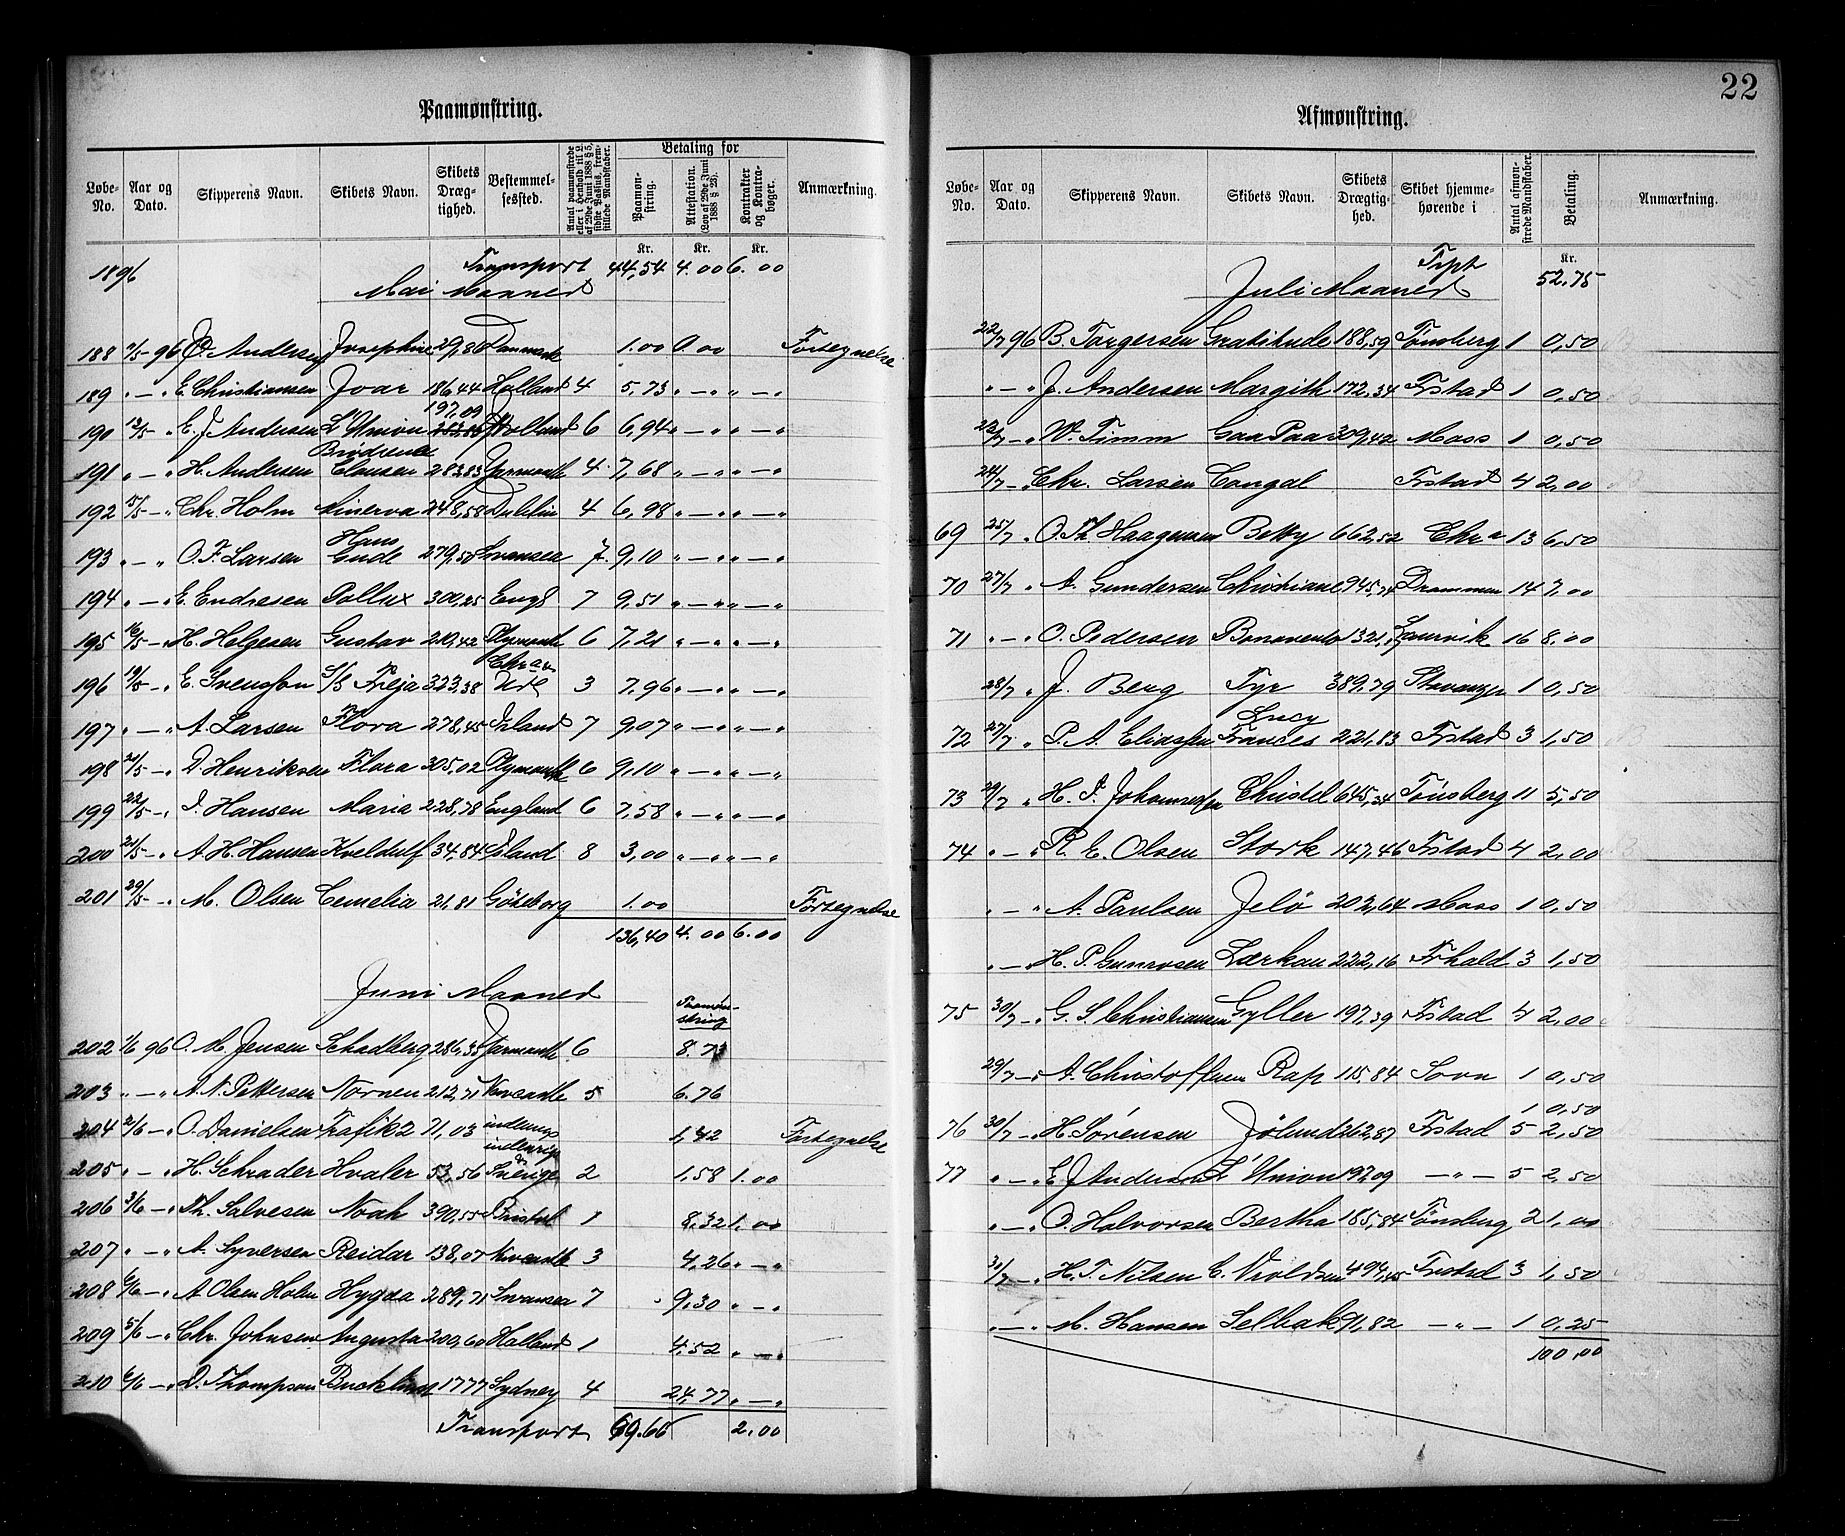 Paamønstring.
Løbe-No. | Aar og Dato. | Skipperens Navn. | Skibets Navn. | Skibets Dræg-tighed. | Bestemmel-sessted. | Antal paamønstrede eller i Henhold til L. af 29de Juni 1888 § 5, sidste Passus, frem-stillede Mandskaber. | Betaling for | Paamøn-string. | Attestation. (Lov af 29de Juni 1888 § 23). | Kontrakter og Kontra-bøger. | Anmærkning.
Kr. Kr. Kr.
1896 Transport 44,54 4.00 6.00
Mai Maaned
188 96 Andersen Josephine 29,86 Danmark 1.00 0.00 Fortegnelse
189 " — " E. Christiansen Ivar 186,44 Holland 4 5,73 " — " " — "
197,09
190 12/5 - " E. J. Andersen L'Union Holland 6 6,94 " — " " — "
Brødrene
191 " — " H. Andersen Clausen 283,83 Yarmouth 4 7,68 " — " " — "
192 15/5 - " Chr. Holm Minerva 248,58 Dublin 4 6,98 " — " " — "
Hans
193 " — " O. F. Larsen Gude 279,50 Swansea 7 9,10 " — " " — "
194 " — " E. Endresen Pollux 300,25 Engl 7 9,51 " — " " — "
195 16/5 - " H. Helgesen Gustav 210,42 Plymouth 6 7,21 " — " " — "
Chr a
196 19/5 - " E. Svensson S/S Freja 323,38 3 7,96 " — " " — "
197 " — " A. Larsen Flora 278,45 Irland 7 9,07 " — " " — "
198 21/5 - " D. Henriksen Flora 305,02 Plymouth 6 9,10 " — " " — "
199 22/5 - " I. Hansen Maria 228,78 England 6 7,58 " — " " — "
200 21/5 - " A. H. Hansen Kveldulf 34,84 Island 8 3,00 " — " " — "
201 29/5 - " M. Olsen Cemelia 21,81 Göteborg 1.00 Fortegnelse
136,40 4.00 6.00
Juni Maaned
Paamøn-
string
202 1/6 96 O. M. Jensen Schadberg Yarmouth 6 8.73
203 " — " A. N. Pettersen Nornen 212,71 5 6.76
204 2/6 - " O. Danielsen Trafik 2 71,03 indenrigs 1,42 Fortegnelse
indenrigs
205 " — " H. Schrader Hvaler 53,56 Sverige 2 1,58 1.00
206 3/6 - " Th. Salvesen Noah 390,55 Bristol 1 8,32 1.00
207 " — " A. Syversen Reidar 138,07 3 4,26 " — "
208 6/6 - " A Olsen Holm Hygæa 289,71 Swansea 7 9,30 " — "
209 5/6 - " Chr. Johnsen Augusta 200,60 Holland 1 4,52 " — "
210 6/6 - " D. Thompson 1777 Sydney 4 24,77 " — "
Transport 69.66 2.00
22
Afmønstring.
Løbe-No. | Aar og Dato. | Skipperens Navn. | Skibets Navn. | Skibets Drægtig-hed. | Skibet hjemme-hørende i | Antal afmøn-strede Mandskaber. | Betaling. | Anmærkning.
Kr.
Trpt 52.75
Juli Maaned
22/7 96 B. Torgersen Gratitude 188,59 Tønsberg 1 0,50
" — " J. Andersen Margith 172,34 Frstad 1 0,50
22/7 - " W. Timm Gaa Paa 309,42 Moss 1 0,50
24/7 - " Chr. Larsen Congal Frstad 4 2,00
69 25/7 " O. Th. Haagensen Betty 662,52 Chr a 13 6,50
70 27/7 " A. Gundersen Christiane 945,74 Drammen 14 7,00
71 " — " O. Pedersen Laurvik 16 8.00
28/7 " J. Berg Tyr 389,79 Stavanger 1 0,50
Lucy
72 27/7 " P. A. Eliassen Frances 221,83 Frstad 3 1,50
73 29/7 " H. P. Johannessen Christel 645,34 Tønsberg 11 5,50
74 " — " R. E. Olsen Stork 147,46 Frstad 4 2,00
" — " A. Paulsen Jelö 202,64 Moss 1 0,50
" — " H. P. Gunnersen Lærkan 222,16 Frhald 3 1,50
75 30/7 - " G. S. Christiansen Gyller 197,39 Frstad 4 2,00
29/7 - " A. Christoffersen Rap 115,84 Sovn 1 0,50
1 0,50
76 30/7 - " H. Sørensen Jølund 262,87 Frstad 5 2,50
77 " — " E J Andersen L'Union 197,09 — " — 5 2,50
" — " O. Halvorsen Bertha 185,84 Tønsberg 2 1,00
31/7 - " H. T. Nilsen 494,45 Frstad 3 1,50
" — " M. Hansen Selbak 91,82 — " — 1 0,25
100,00